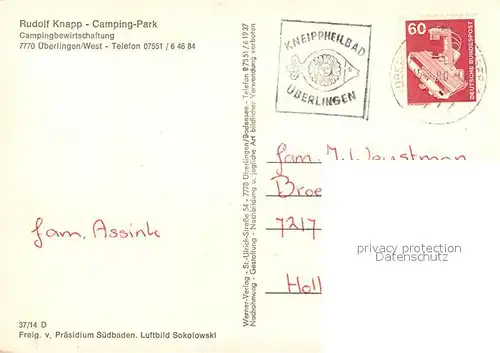 Rudolf Knapp - Camping-Park
Campingbewirtschaftung
7770 Überlingen/West - Telefon 07551 / 6 46 84
KNEIPPHEILBAD
ÜBERLINGEN
60
DEUTSCHE BUNDESPOST
Werner-Verlag - St.-Ulrich-Straße 54 - 7770 Überlingen/Bodensee - Telefon 0 75 51 / 6 19 37
Nachnahmung - Gestaltung - Nachbildung u. jegliche Art bildlicher Verwendung verboten
fam.
Broe
7217
Holl
fam. Assink
privacy protection
Datenschutz
37/14 D
Freig. v. Präsidium Südbaden. Luftbild Sokolowski